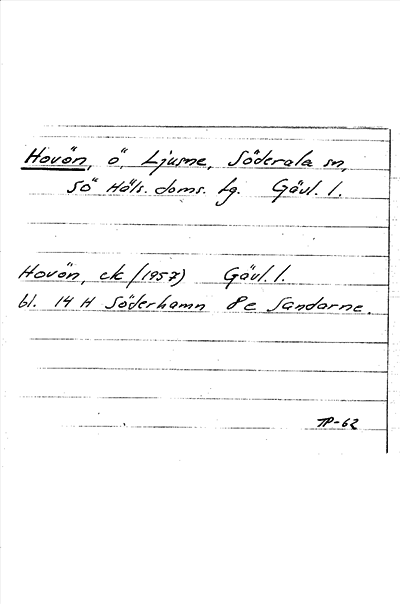 Hovön, ö, Ljusne, Söderala sn,
SÖ Häls. doms. tg. Gävl. l.
Hovön, ek (1957) Gävl. l.
bl. 14 H Söderhamn 8 e Sandarne.
TP-62